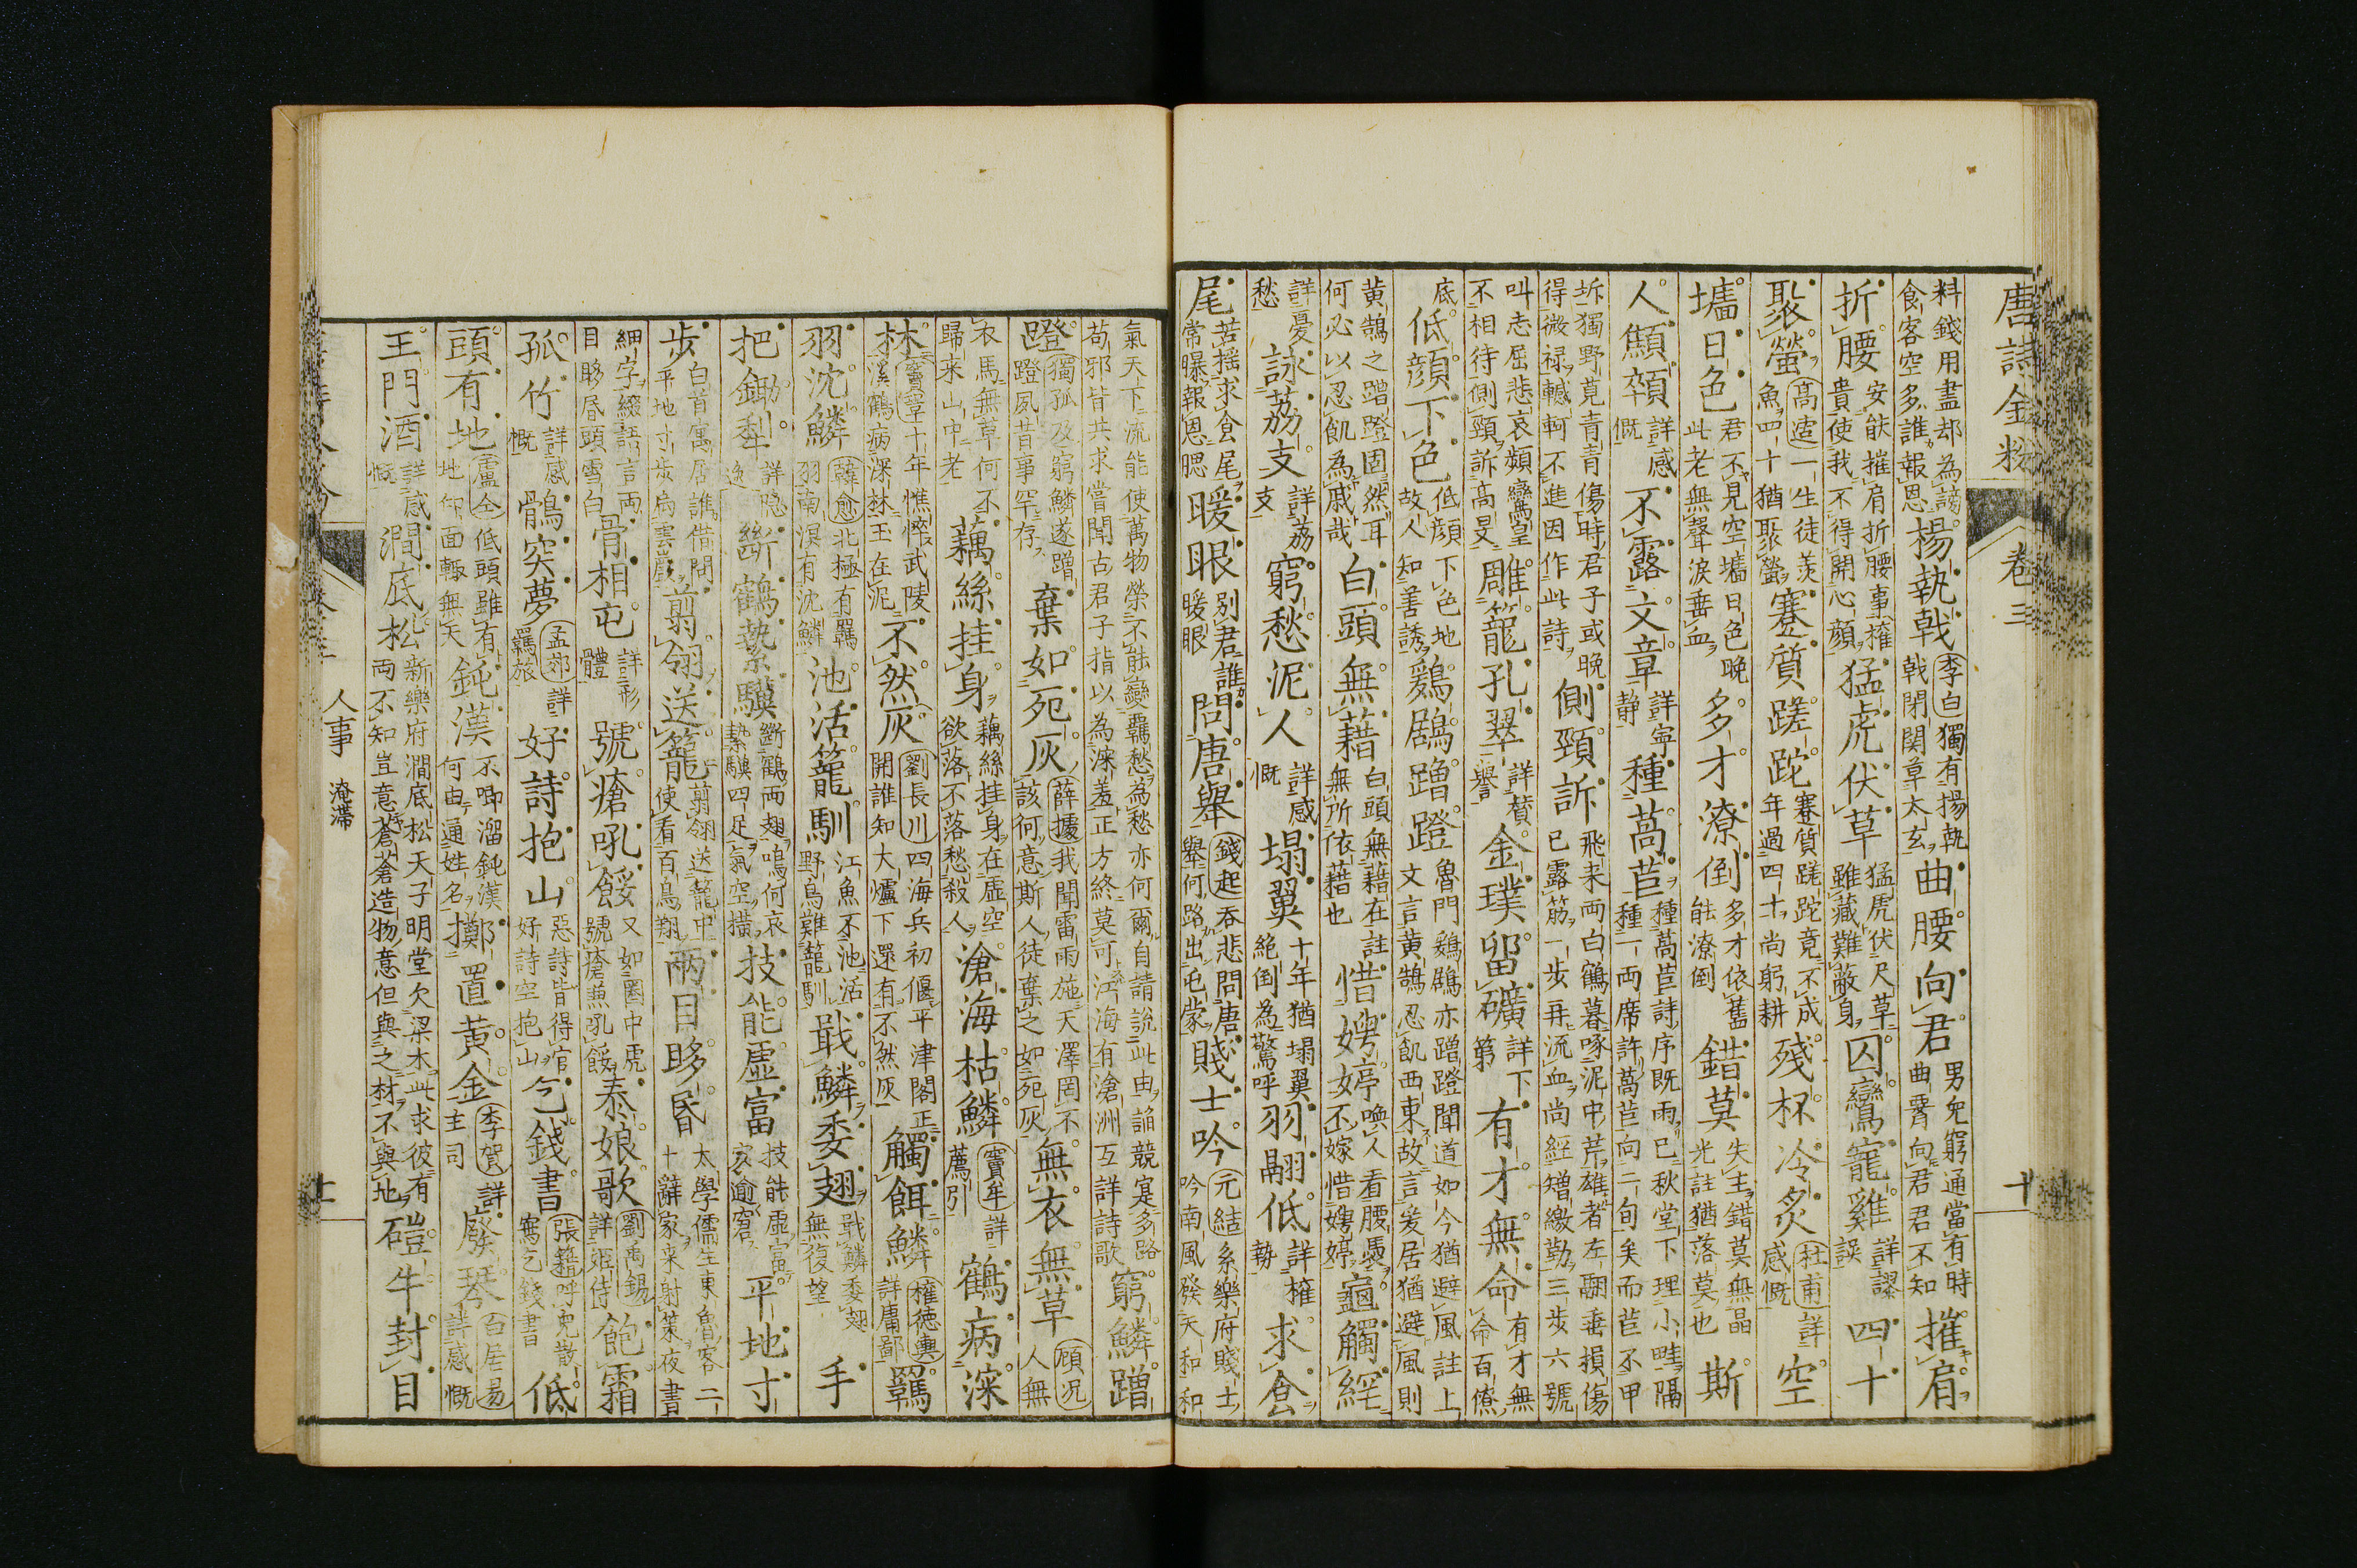 唐詩金粉 卷三 十
料錢用盡却為謗食客空多誰報恩 楊執戟 李白獨有揚執戟閉関草太玄 曲腰向君 男兒窮通當有時曲腰向君君不知 摧肩
折腰 安能摧肩折腰事權貴使我不得開心顔 猛虎伏草 猛虎伏尺草雖藏難蔽身 囚鸞寵雞 詳謬誤 四十
聚螢 高適一生徒羨魚四十猶聚螢 蹇質蹉跎 蹇質蹉跎竟不成年過四十尚躬耕 殘杯冷炙 杜甫詳感慨 空
墻日色 君不見空墻日色晚此老無聲淚垂血 多才潦倒 多才依舊能潦倒 錯莫 失主錯莫無晶光註猶落莫也 斯
人顦顇 詳感慨 不露文章 詳寧静 種萵苣 種萵苣詩序既雨已秋堂下理小畦隔種一両席許萵苣向二旬矣而苣不甲
坼獨野莧青青傷時君子或晚得微禄轗軻不進因作此詩 側頸訴 飛来両白鶴暮啄泥中芹雄者左翮垂損傷已露筋一步再流血尚經矰繳勤三步六號
叫志屈悲哀頻鸞皇不相待側頸訴高旻 雕籠孔翠 詳賛譽 金璞留礦 詳下第 有才無命 有才無命百僚
底 低顔下色 低顔下色地故人知善誘 鷄鶋蹭蹬 魯門鷄鶋亦蹭蹬聞道如今猶避風註上文言黄鵠忍飢西東故言爰居猶避風則
黄鵠之蹭蹬固然耳何必以忍飢為戚哉 白頭無藉 白頭無藉在註無所依藉也 惜娉婷 喚人看腰褭不嫁惜娉婷 龜觸網
詳憂愁 詠荔支 詳荔支 窮愁泥人 詳感慨 塌翼 十年猶塌翼絶倒為驚呼 羽翮低 詳權勢 求食
尾 苦摇求食尾常曝報恩腮 暖眼 别君誰暖眼 問唐舉 錢起吞悲問唐舉何路出屯蒙 賤士吟 元結系樂府賤士吟南風發天和和
氣天下流能使萬物榮不能變羈愁為愁亦何爾自請說此由諂競寔多路苟邪皆共求嘗聞古君子指以為深羞正方終莫可江海有滄洲互詳詩歌 窮鱗蹭
蹬 獨孤及窮鱗遂蹭蹬夙昔事罕存 棄如死灰 薛據我聞雷雨施天澤罔不該何意斯人徒棄之如死灰 無衣無草 顧况人無
衣馬無草何不歸来山中老 藕絲挂身 藕絲挂身在虛空欲落不落愁殺人 滄海枯鱗 竇牟詳薦引 鶴病深
林 竇䓪十年憔悴武陵溪鶴病深林玉在泥 不然灰 劉長川四海兵初偃平津閣正開誰知大爐下還有不然灰 觸餌鱗 權德輿詳庸鄙 羈
羽沈鱗 韓愈北極有羈羽南溟有沈鱗 池活籠馴 江魚不池活野鳥難籠馴 戢鱗委翅 戢鱗委翅無復望 手
把鋤犁 詳隠逸 斷鶴縶驥 斷鶴両翅鳴何哀縶驥四足氣空横 技能虛富 技能虛富家逾窘 平地寸
步 白首寓居誰借問平地寸步扃雲扃 翦翎送籠 翦翎送籠中使看百鳥翔 両目眵昏 太學儒生東魯客二十辭家来射策夜書
細字綴語言両目眵昏頭雪白 骨相屯 詳形體 號瘡吼餒 又如圈中虎號瘡兼吼餒 泰娘歌 劉禹錫詳姬侍 飽霜
孤竹 詳感慨 鶻突夢 孟郊詳羈旅 好詩抱山 惡詩皆得官好詩空抱山 乞錢書 張籍呼兒散寫乞錢書 低
頭有地 盧仝低頭雖有地仰面輒無天 鈍漢 不唧溜鈍漢何由通姓名 擲置黄金 李賀詳主司 廢琴 白居易詳感慨
王門酒 詳感慨 澗底松 新樂府澗底松天子明堂欠梁木此求彼有両不知豈意蒼蒼造物意但與之材不與地 磑牛封 目
人事 淹滞